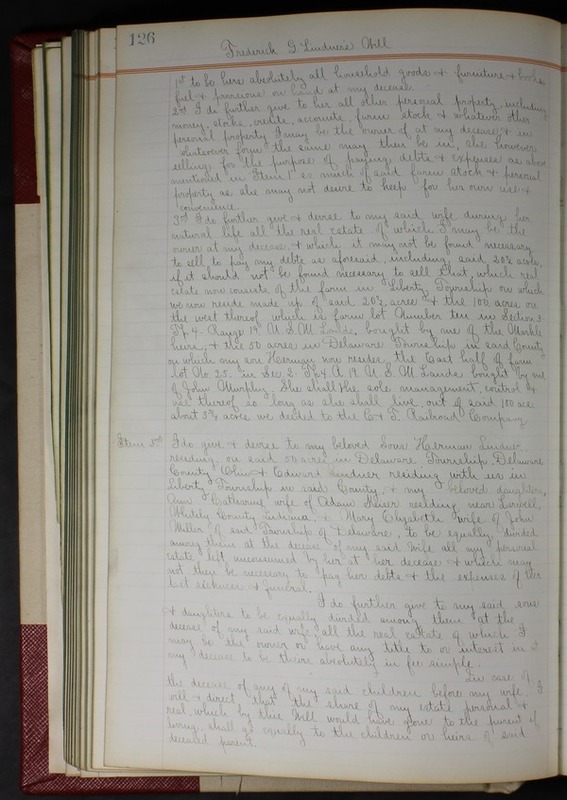 126
Frederick G. Lindner's Will
1st to be hers absolutely all household goods & furniture & books
fuel & provisions on hand at my decease.
2nd I do further give to her all other personal property, including
money, stocks, credits, accounts, farm stock & whatever other
personal property I may be the owner of at my decease & in
whatsoever form the same may then be in, she however
selling for the purpose of paying debts & expenses as above
mentioned in Item 1st so much of said farm stock & personal
property as she may not desire to keep for her own use &
convenience.
3rd I do further give & devise to my said wife during her
natural life all the real estate of which I may be the
owner at my decease, & which it may not be found necessary
to sell to pay my debts as aforesaid, including said 20¾ acres,
if it should not be found necessary to sell that, which real
estate now consists of the farm in Liberty Township on which
we now reside made up of said 20¾ acres & the 100 acres on
the west thereof which is farm lot Number ten in Section 3
Tp 4 Range 19 U.S.M Lands, bought by me of the Markle
heirs, & the 50 acres in Delaware Township in said County
on which my son Herman now resides, the East half of farm
lot No 25. in Sec 2. Tp 4 R 19 U.S.M Lands bought by me
of John Murphy. She shall the sole management, control &
use thereof so long as she shall live, out of said 100 acs
about 5¾ acres we deeded to the C & T. Railroad Company
Item 3rd I do give & devise to my beloved sons Herman Lindner
residing on said 50 acres in Delaware Township, Delaware
County Ohio & Edward Lindner residing with us in
Liberty Township in said County, & my beloved daughters,
Ann Catharine wife of Adam residing near Larwell,
Whitely County Indiana, & Mary Elizabeth wife of John
Miller of said Township of Delaware, to be equally divided
among them at the decease of my said Wife all my personal
estate left unconsumed by her at her decease & which may
not then be necessary to pay her debts & the expenses of her
last sickness & funeral.
I do further give to my said sons
& daughters to be equally divided among them at the
decease of my said wife, all the real estate of which I
may be the owner or have any title to or interest in at
my decease to be theirs absolutely in fee simple.
In case of
the decease of any of my said children before my wife, I
will & direct that the share of my estate personal &
real, which by this Will would have gone to the parent if
living, shall go equally to the children or heirs of said
deceased parent.